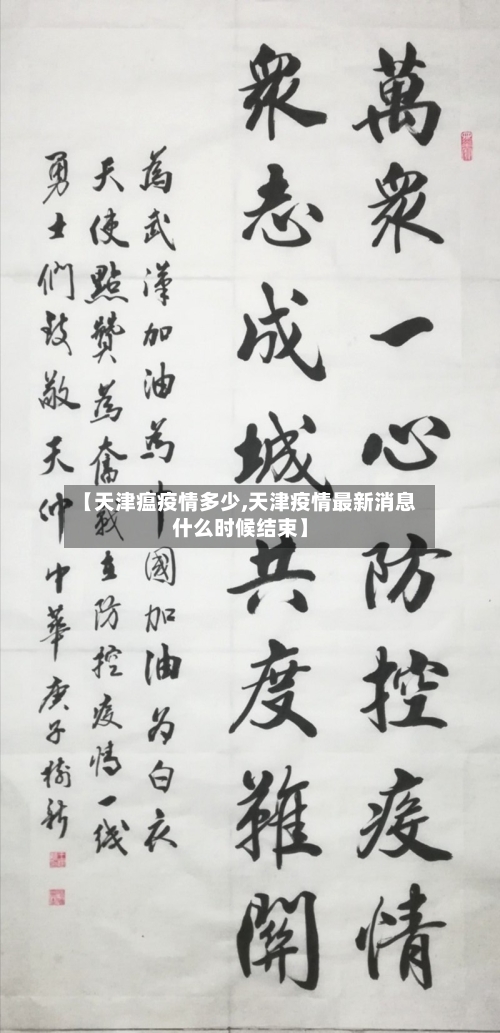 萬衆一心防控疫情
衆志成城共度難關
為武漢加油為中國加油為白衣
天使點贊為奮戰在防控疫情一綫
勇士們致敬天仲中華庚子樹新
【天津瘟疫情多少,天津疫情最新消息
什么时候结束】